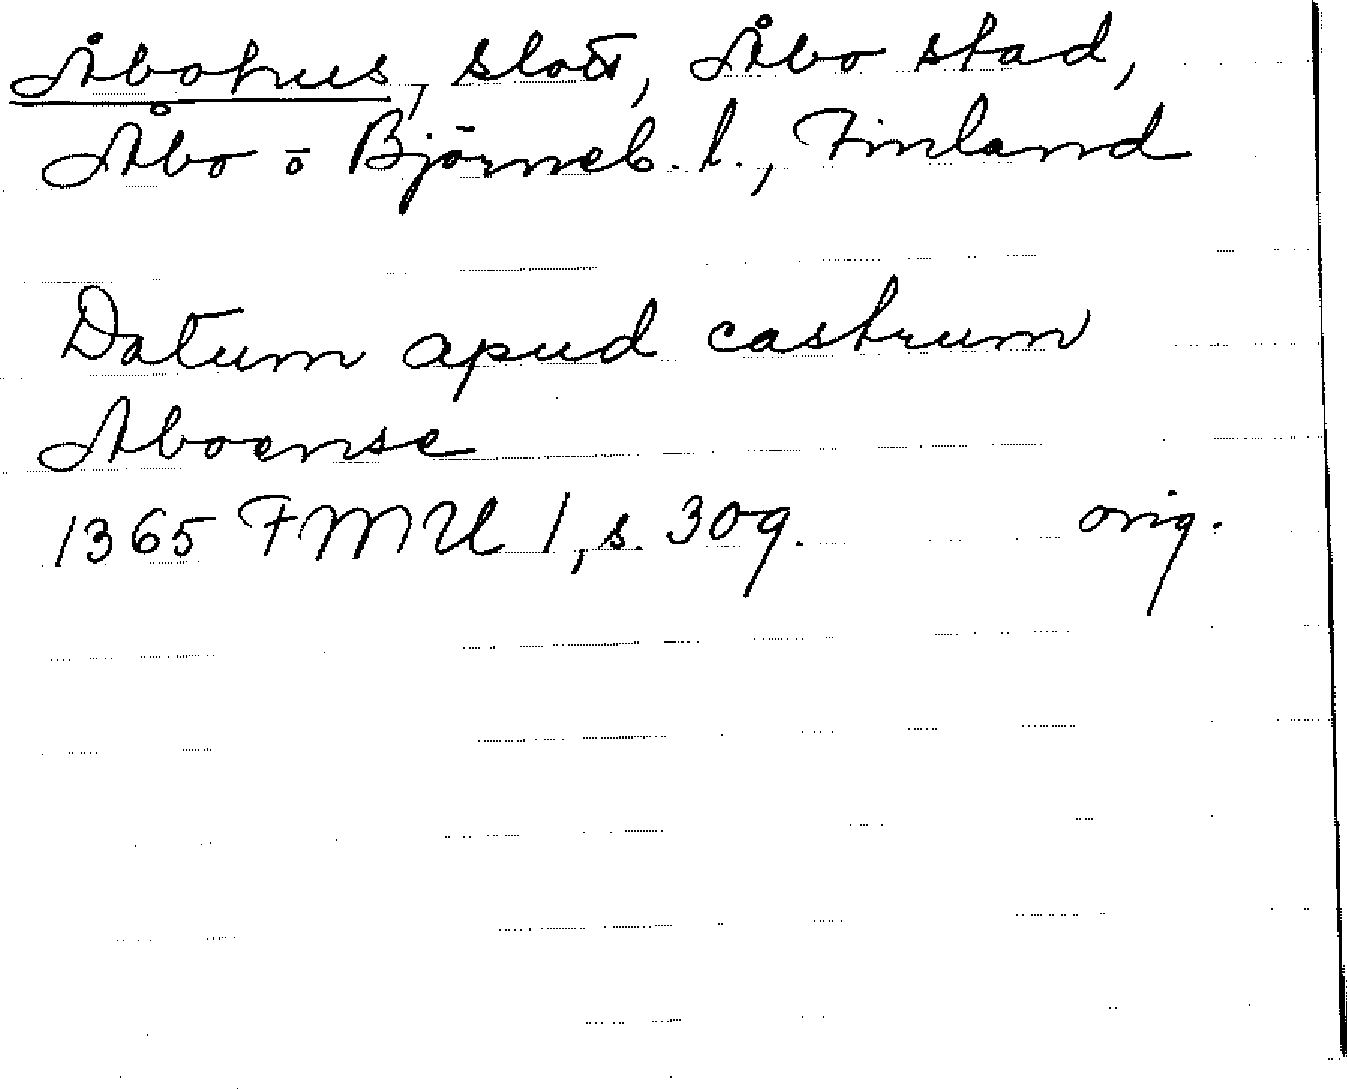 Åbohus, slott, Åbo stad,
Åbo o Björneb. l., Finland
Datum apud castrum
Aboense
1365 FMU 1, s. 309. orig.